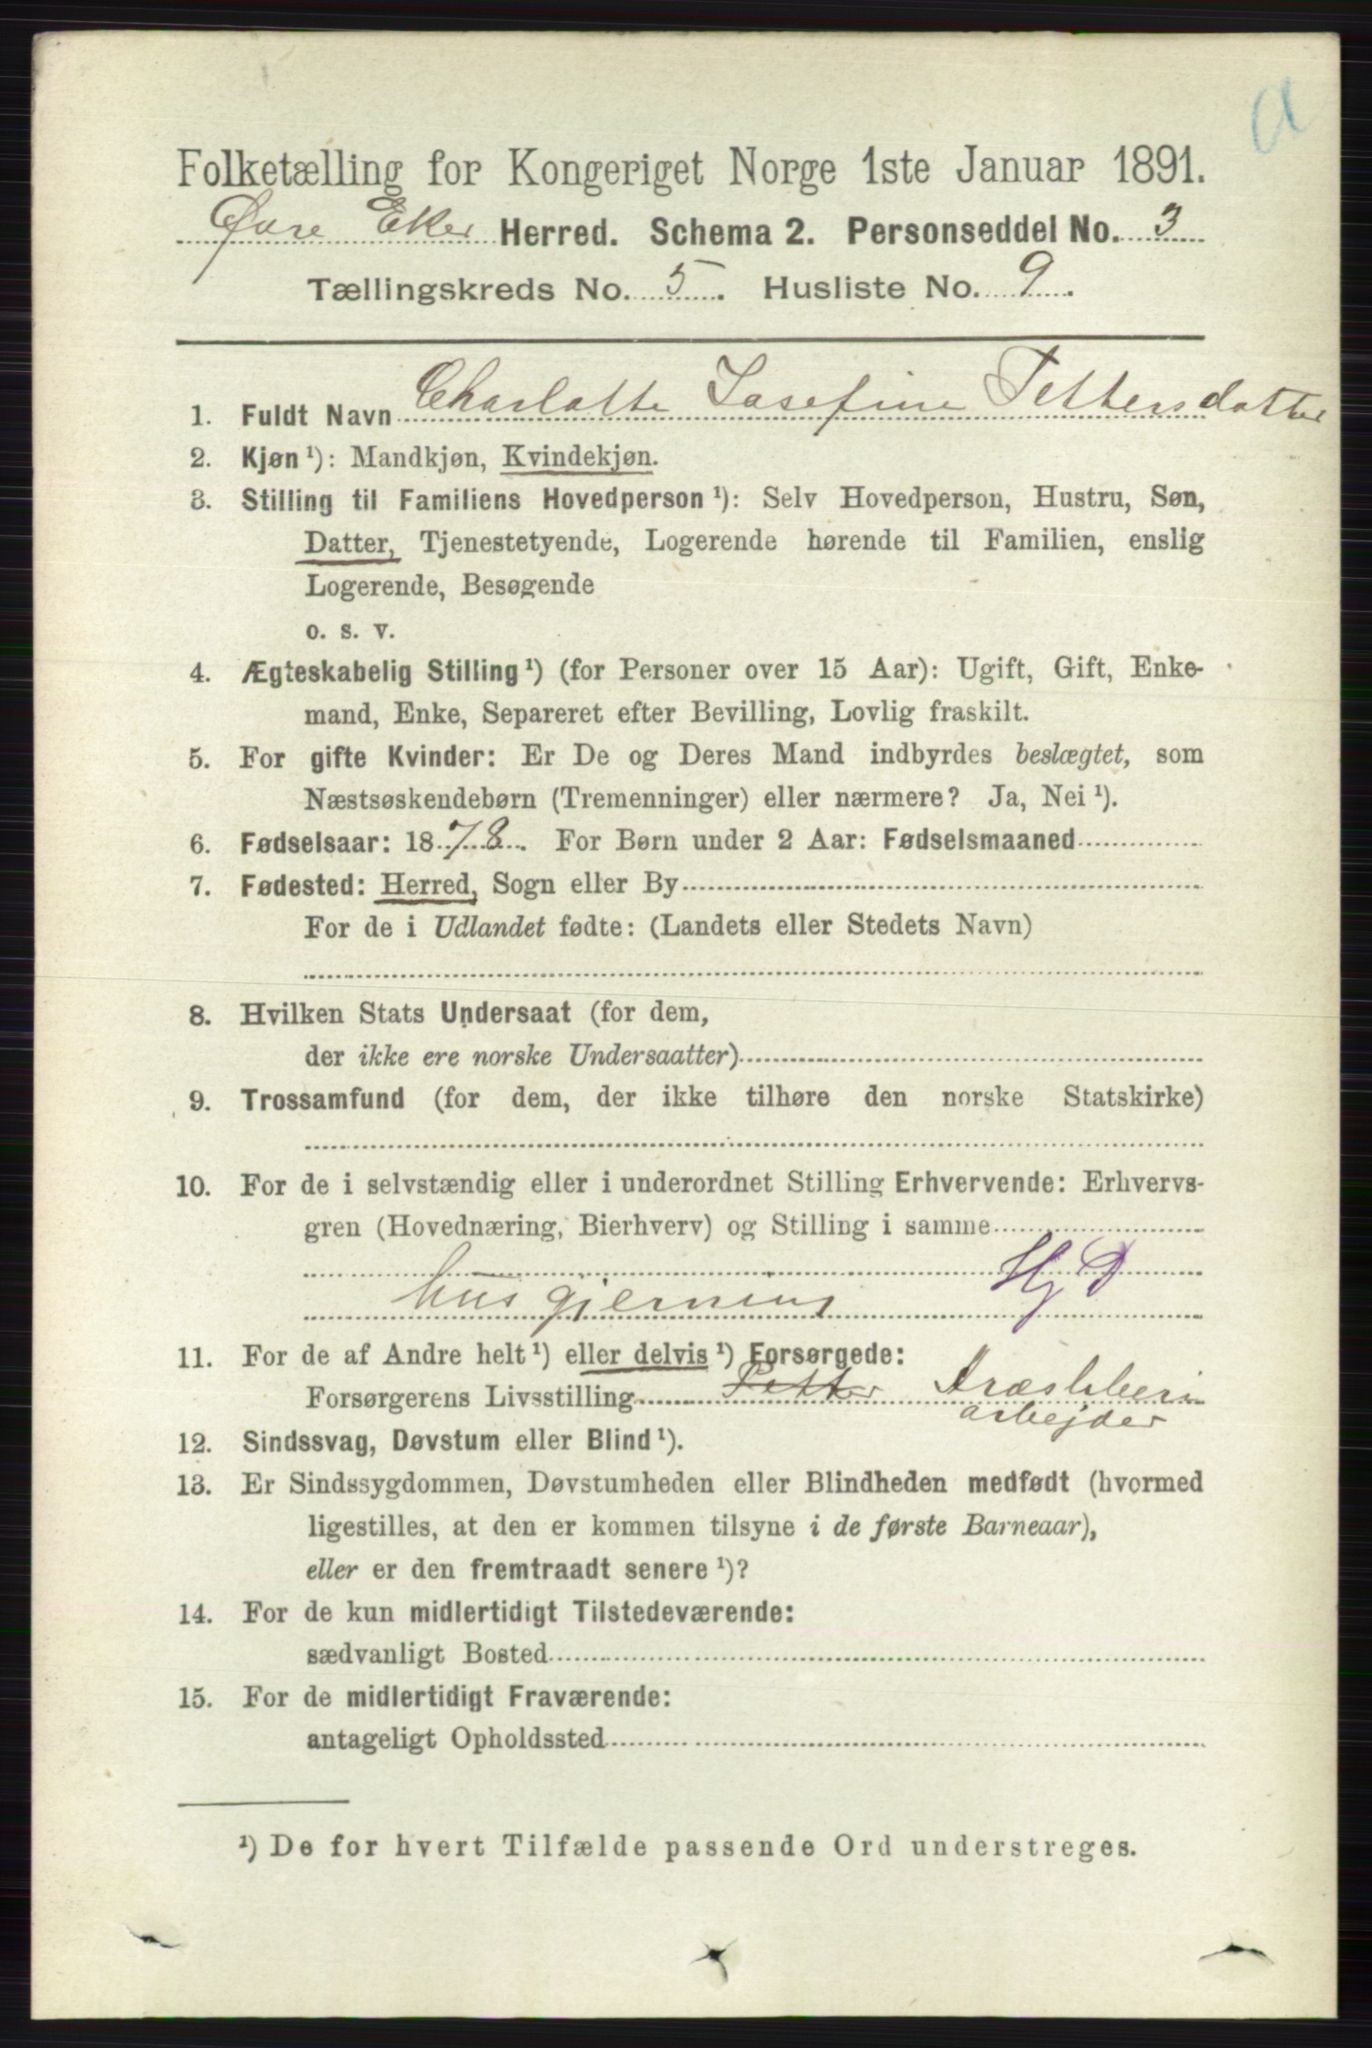 Folketælling for Kongeriget Norge 1ste Januar 1891.
Øvre Eker Herred. Schema 2. Personseddel No. 3
Tællingskreds No. 5. Husliste No. 9.
1. Fuldt Navn Charlotte Josefine Pettersdatter
2. Kjøn ¹): Mandkjøn, Kvindekjøn.
3. Stilling til Familiens Hovedperson ¹): Selv Hovedperson, Hustru, Søn,
Datter, Tjenestetyende, Logerende hørende til Familien, enslig
Logerende, Besøgende
o. s. v.
4. Ægteskabelig Stilling ¹) (for Personer over 15 Aar): Ugift, Gift, Enke-
mand, Enke, Separeret efter Bevilling, Lovlig fraskilt.
5. For gifte Kvinder: Er De og Deres Mand indbyrdes beslægtet, som
Næstsøskendebørn (Tremenninger) eller nærmere? Ja, Nei ¹).
6. Fødselsaar: 1878. For Børn under 2 Aar: Fødselsmaaned
7. Fødested: Herred, Sogn eller By
For de i Udlandet fødte: (Landets eller Stedets Navn)
8. Hvilken Stats Undersaat (for dem,
der ikke ere norske Undersaatter)
9. Trossamfund (for dem, der ikke tilhøre den norske Statskirke)
10. For de i selvstændig eller i underordnet Stilling Erhvervende: Erhvervs-
gren (Hovednæring, Bierhverv) og Stilling i samme
husgjerning Hj D
11. For de af Andre helt ¹) eller delvis ¹) Forsørgede:
Forsørgerens Livsstilling Petter Træsliberi
arbejder
12. Sindssvag, Døvstum eller Blind ¹).
13. Er Sindssygdommen, Døvstumheden eller Blindheden medfødt (hvormed
ligestilles, at den er kommen tilsyne i de første Barneaar),
eller er den fremtraadt senere ¹)?
14. For de kun midlertidigt Tilstedeværende:
sædvanligt Bosted
15. For de midlertidigt Fraværende:
antageligt Opholdssted
¹) De for hvert Tilfælde passende Ord understreges.